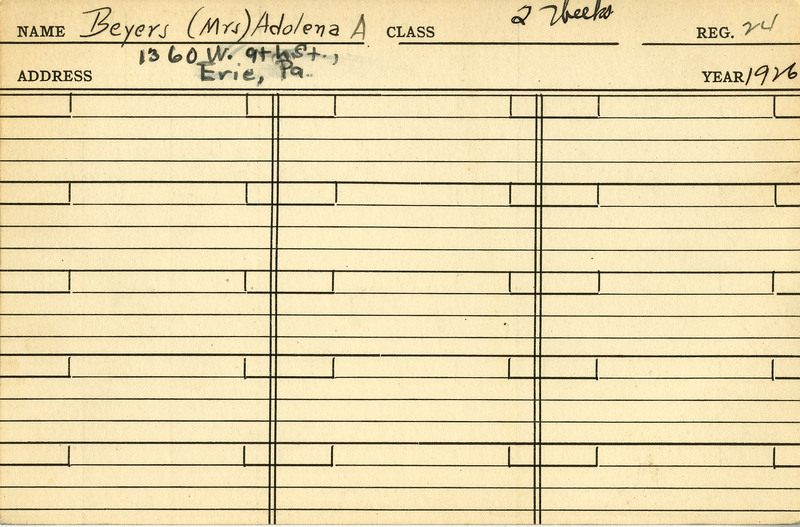 NAME Beyers (Mrs) Adolena A CLASS 2 Weeks REG. 24
1360 W. 9th St.,
ADDRESS Erie, Pa. YEAR 1926